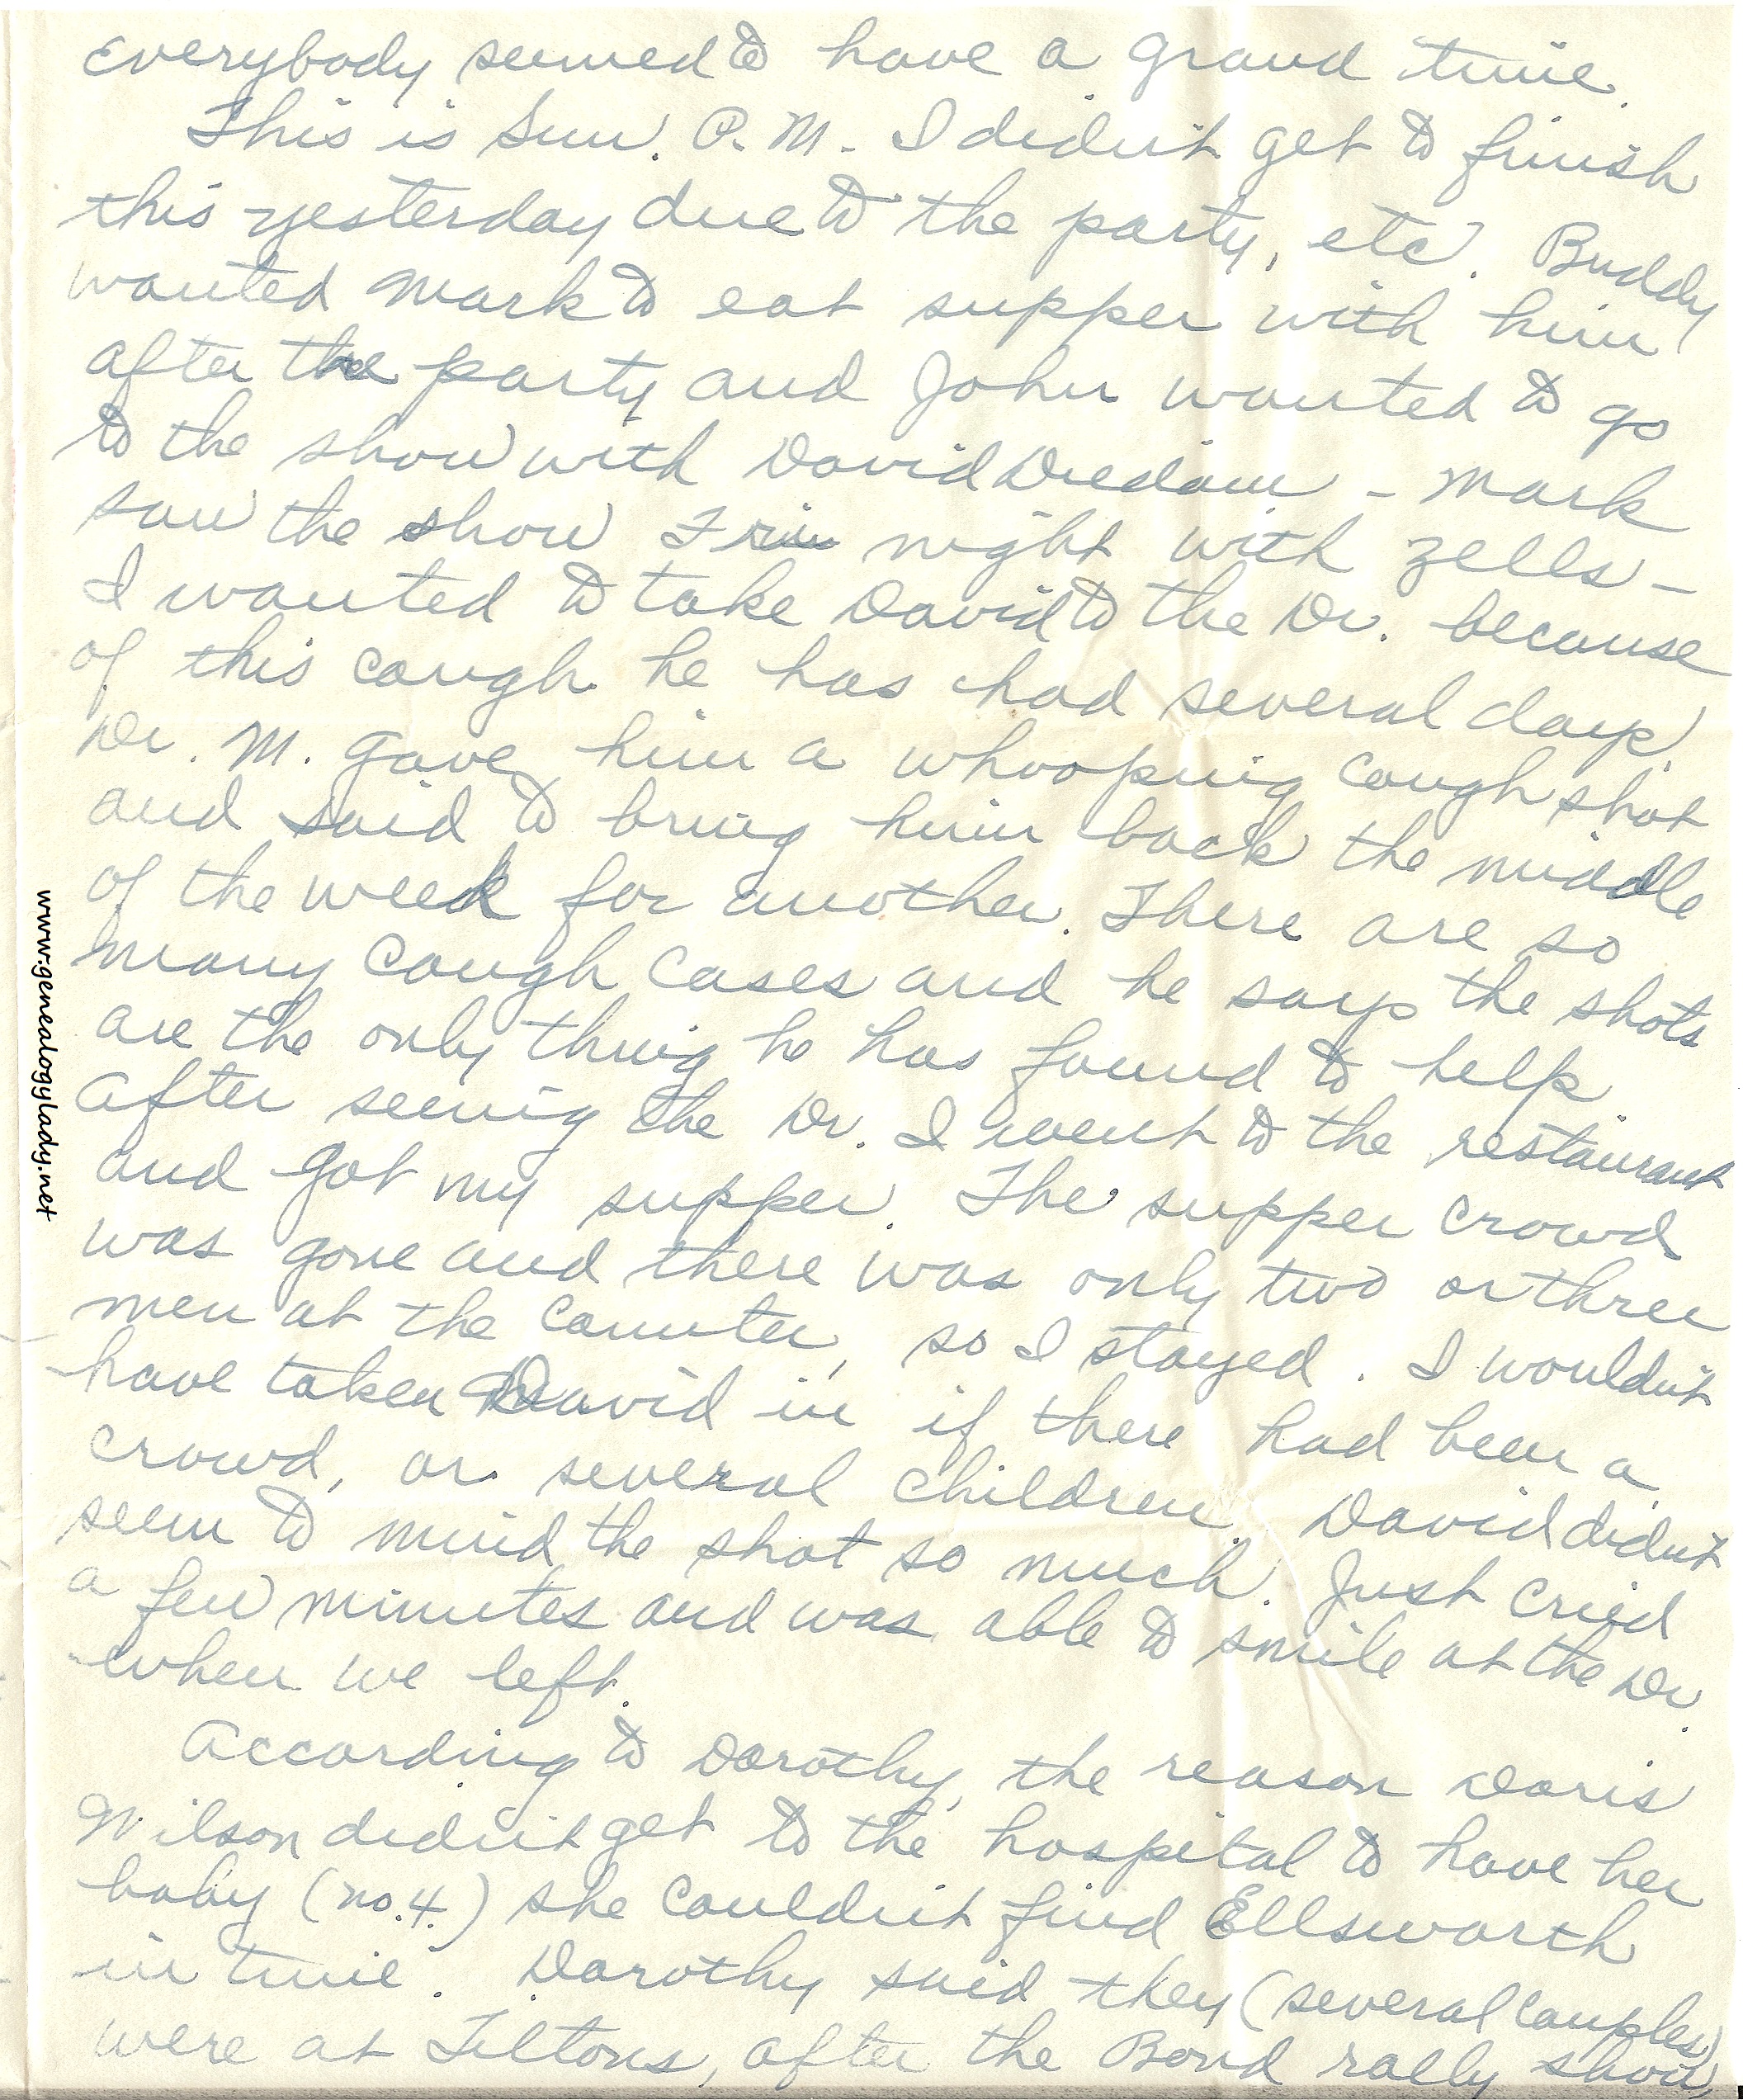 Everybody seemed to have a grand time.
This is Sun. P.M. I didn't get to finish
this yesterday due to the party, etc. Buddy
wanted Mark to eat supper with him
after the party and John wanted to go
to the show with David - Mark
saw the show Fri night with Zells -
I wanted to take David to the Dr. because
of this cough he has had several days.
Dr. M. gave him a whooping cough shot
and said to bring him back the middle
of the week for another. There are so
many cough cases and he says the shots
are the only thing he has found to help.
After seeing the Dr. I went to the restaurant
and got my supper. The supper crowd
was gone and there was only two or three
men at the counter, so I stayed. I wouldn't
have taken David in if there had been a
crowd, or several children. David didn't
seem to mind the shot so much. Just cried
a few minutes and was able to smile at the Dr.
when we left.
According to Dorothy, the reason Doris
Wilson didn't get to the hospital to have her
baby (no. 4.) she couldn't find Ellsworth
in time. Dorothy said they (several couples)
were at Tiltons, after the Bond rally show,
www.genealogylady.net